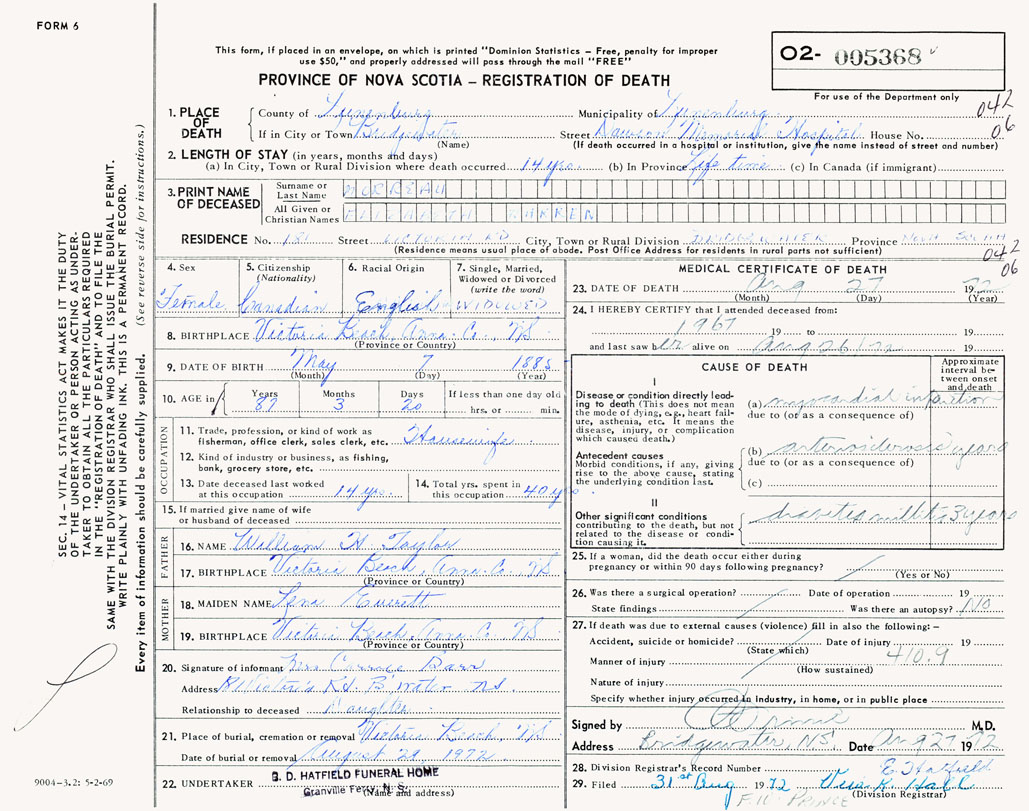 FORM 6
This form, if placed in an envelope, on which is printed "Dominion Statistics – Free, penalty for improper
use $50," and properly addressed will pass through the mail "FREE"
PROVINCE OF NOVA SCOTIA – REGISTRATION OF DEATH
02- 005368
For use of the Department only
042
06
1. PLACE OF DEATH
County of Lunenburg Municipality of Lunenburg
If in City or Town Bridgewater Street Dawson Memorial Hospital House No.
(Name) (If death occurred in a hospital or institution, give the name instead of street and number)
2. LENGTH OF STAY (in years, months and days)
(a) In City, Town or Rural Division where death occurred 14 yrs. (b) In Province Life time (c) In Canada (if immigrant)
3. PRINT NAME OF DECEASED
Surname or Last Name
All Given or Christian Names
RESIDENCE No. 181 Street VICTORIA RD City, Town or Rural Division BRIDGEWATER Province NOVA SCOTIA
(Residence means usual place of abode. Post Office Address for residents in rural parts not sufficient)
042
06
4. Sex Female
5. Citizenship (Nationality) Canadian
6. Racial Origin English
7. Single, Married, Widowed or Divorced (write the word) WIDOWED
8. BIRTHPLACE Victoria Beach, Anna. Co., NS
(Province or Country)
9. DATE OF BIRTH May 7 1885
(Month) (Day) (Year)
10. AGE in Years 87 Months 3 Days 20 If less than one day old hrs. or min.
OCCUPATION
11. Trade, profession, or kind of work as fisherman, office clerk, sales clerk, etc. Housewife
12. Kind of industry or business, as fishing, bank, grocery store, etc.
13. Date deceased last worked at this occupation 14 yrs.
14. Total yrs. spent in this occupation 40 yrs.
15. If married give name of wife or husband of deceased
FATHER
16. NAME William H. Taylor
17. BIRTHPLACE Victoria Beach, Anna. Co. NS
(Province or Country)
MOTHER
18. MAIDEN NAME Lena Everett
19. BIRTHPLACE Victoria Beach, Anna. Co NS
(Province or Country)
20. Signature of informant
Address 181 Victoria Rd. B'Water NS.
Relationship to deceased Daughter
21. Place of burial, cremation or removal Victoria Beach, NS
Date of burial or removal August 29 1972
22. UNDERTAKER B. D. HATFIELD FUNERAL HOME
Granville Ferry, N. S.
(Name and address)
MEDICAL CERTIFICATE OF DEATH
23. DATE OF DEATH Aug 27 1972
(Month) (Day) (Year)
24. I HEREBY CERTIFY that I attended deceased from:
1967 19 to 19
and last saw her alive on Aug 26/72 19
CAUSE OF DEATH
Approximate interval between onset and death
I
Disease or condition directly leading to death (This does not mean the mode of dying, e.g., heart failure, asthenia, etc. It means the disease, injury, or complication which caused death.)
(a) myocardial infarction
due to (or as a consequence of)
Antecedent causes
Morbid conditions, if any, giving rise to the above cause, stating the underlying condition last.
(b) arteriosclerosis years
due to (or as a consequence of)
(c)
II
Other significant conditions contributing to the death, but not related to the disease or condition causing it.
diabetes mellitis 3 years
25. If a woman, did the death occur either during pregnancy or within 90 days following pregnancy?
(Yes or No)
26. Was there a surgical operation? Date of operation 19
State findings Was there an autopsy? No
27. If death was due to external causes (violence) fill in also the following: –
Accident, suicide or homicide? Date of injury 19
(State which)
Manner of injury 410.9
(How sustained)
Nature of injury
Specify whether injury occurred in industry, in home, or in public place
Signed by M.D.
Address Bridgewater, NS. Date Aug 27 1972
28. Division Registrar's Record Number E. Hatfield
29. Filed 31st Aug 1972
(Division Registrar)
F.W. PRINCE
SEC. 14 – VITAL STATISTICS ACT MAKES IT THE DUTY
OF THE UNDERTAKER OR PERSON ACTING AS UNDER-
TAKER TO OBTAIN ALL THE PARTICULARS REQUIRED
IN THE "REGISTRATION OF DEATH" AND FILE THE
SAME WITH THE DIVISION REGISTRAR WHO SHALL ISSUE THE BURIAL PERMIT.
WRITE PLAINLY WITH UNFADING INK. THIS IS A PERMANENT RECORD.
Every item of information should be carefully supplied. (See reverse side for instructions.)
9004-3.2: 5-2-69